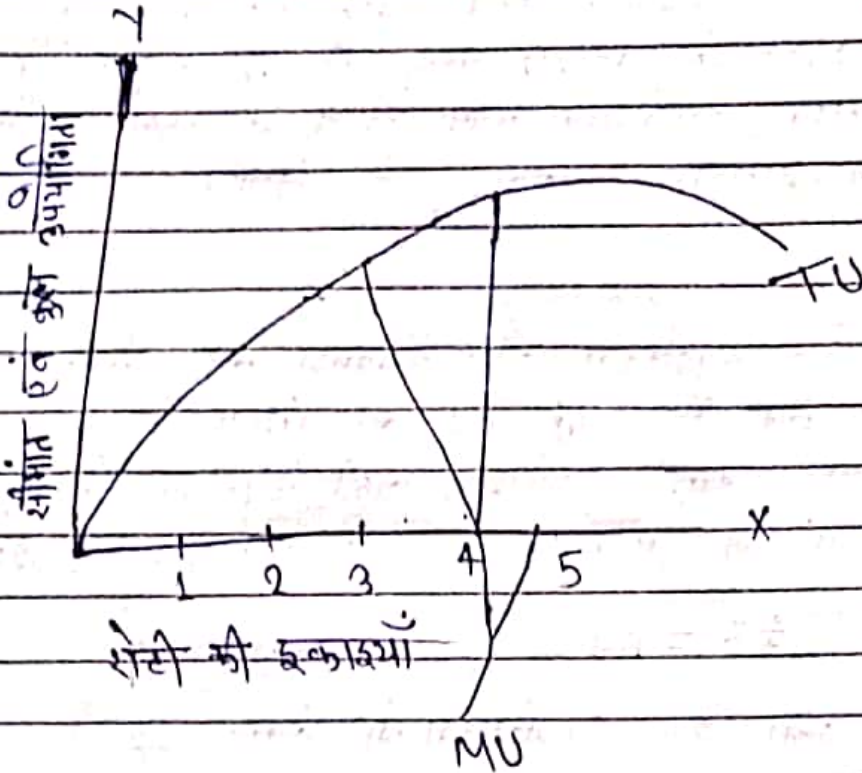 Y
सीमांत एवं कुल उपयोगिता
TU
X
1 2 3 4 5
रोटी की इकाइयाँ
MU